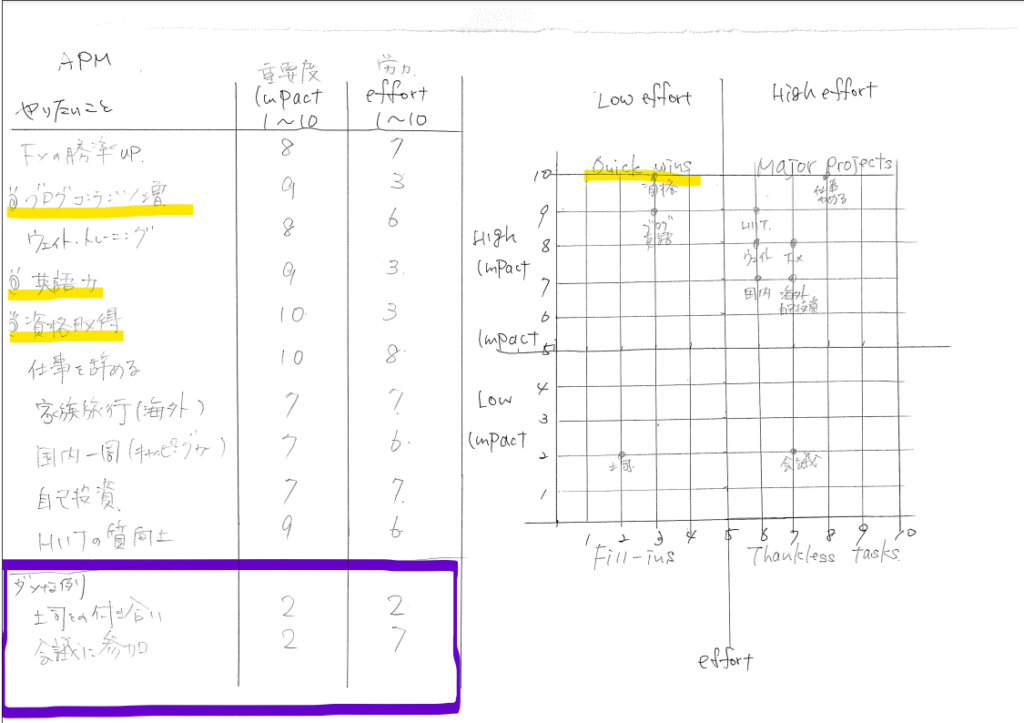 APM
やりたいこと
重要度 労力
Impact effort
1〜10 1〜10
FXの勝率UP. 8 7
ブログコンテンツ増 9 3
ウェイト・トレーニング 8 6
英語力 9 3
資格取得 10 3
仕事を辞める 10 8
家族旅行(海外) 7 7
国内一周(キャンピングカー) 7 6
自己投資 7 7
HIITの質向上 9 6
ダメな例
上司との付き合い 2 2
会議に参加 2 7
Low effort High effort
Quick wins Major Projects
High Impact
Impact
Low Impact
10
9
8
7
6
5
4
3
2
1
資格
仕事
やめる
ブログ
英語
HIIT.
ウェイト FX
国内 海外
自己投資
上司
会議
1 2 3 4 5 6 7 8 9 10
Fill-ins Thankless tasks
effort